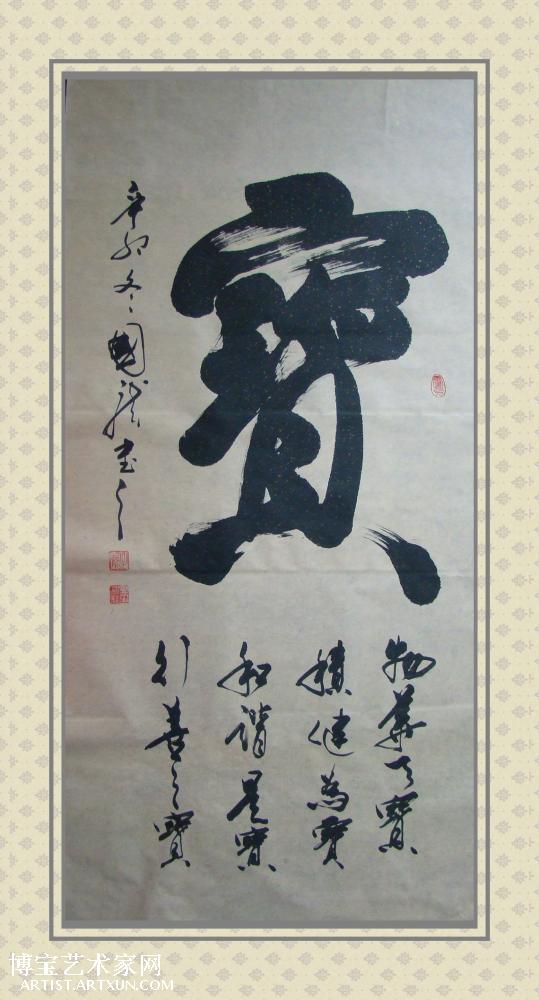 寶
物華天寶
積健為寶
和諧是寶
行善之寶
辛卯冬國書之
博宝艺术家网
ARTIST.ARTXUN.COM